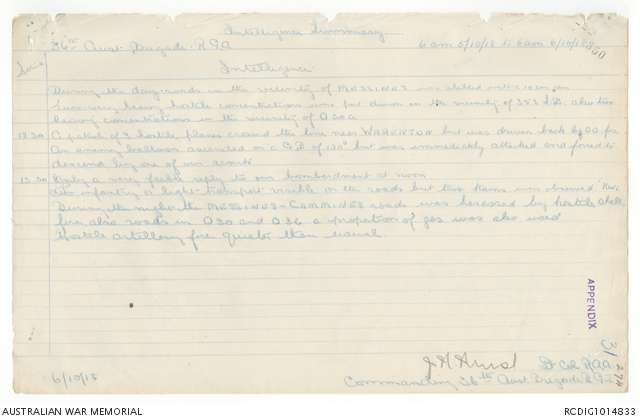 Intelligence Summary
36th Aust Brigade R.G.A 6am 5/10/18 to 6am 6/10/18
Intelligence
During the day roads in the vicinity of MESSINES was shelled
heavy hostile concentrations was put down in the vicinity of also two
heavy concentrations in the vicinity of O30a
12.30 A patrol of 3 hostile planes crossed the line near WARNETON but was driven back by AA fire
An enemy balloon ascended on a G.B. of 120° but was immediately attacked and forced to
descend by one of our scouts
13.30 Only a very feeble reply to our bombardment at noon
infantry & light transport visible on the roads but two trains was observed
During the night the MESSINES - COMMINES road was harassed by hostile shell
fire, also roads in O30 and O36 a proportion of gas was also used
Hostile artillery fire quieter than usual.
APPENDIX
6/10/18
Lt Col RAA
Commanding 36th Aust Brigade R.G.A
AUSTRALIAN WAR MEMORIAL
RCDIG1014833